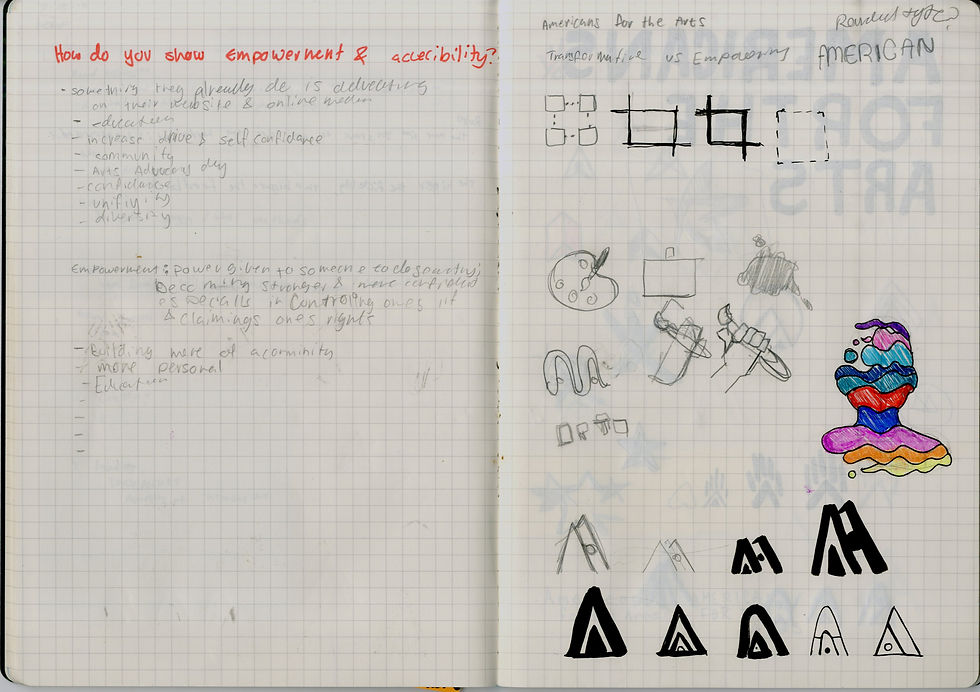 How do you show Empowerment & accecibility?
- something they already do is delivering
on their website & online media
- education
- increase drive & self confidance
- community
- Arts Advocacy day
- confidance
- unifiyity
- diversity
Empowerment: power given to someone to do
Becoming stronger & more confident
especially in controling ones
& claimings ones rights
- Building more of a comminity
- more personal
- Education
Americans for the Arts
Rounded type?
Transformative vs Empowering
AMERICAN
AMERICANS
FOR THE
ARTS